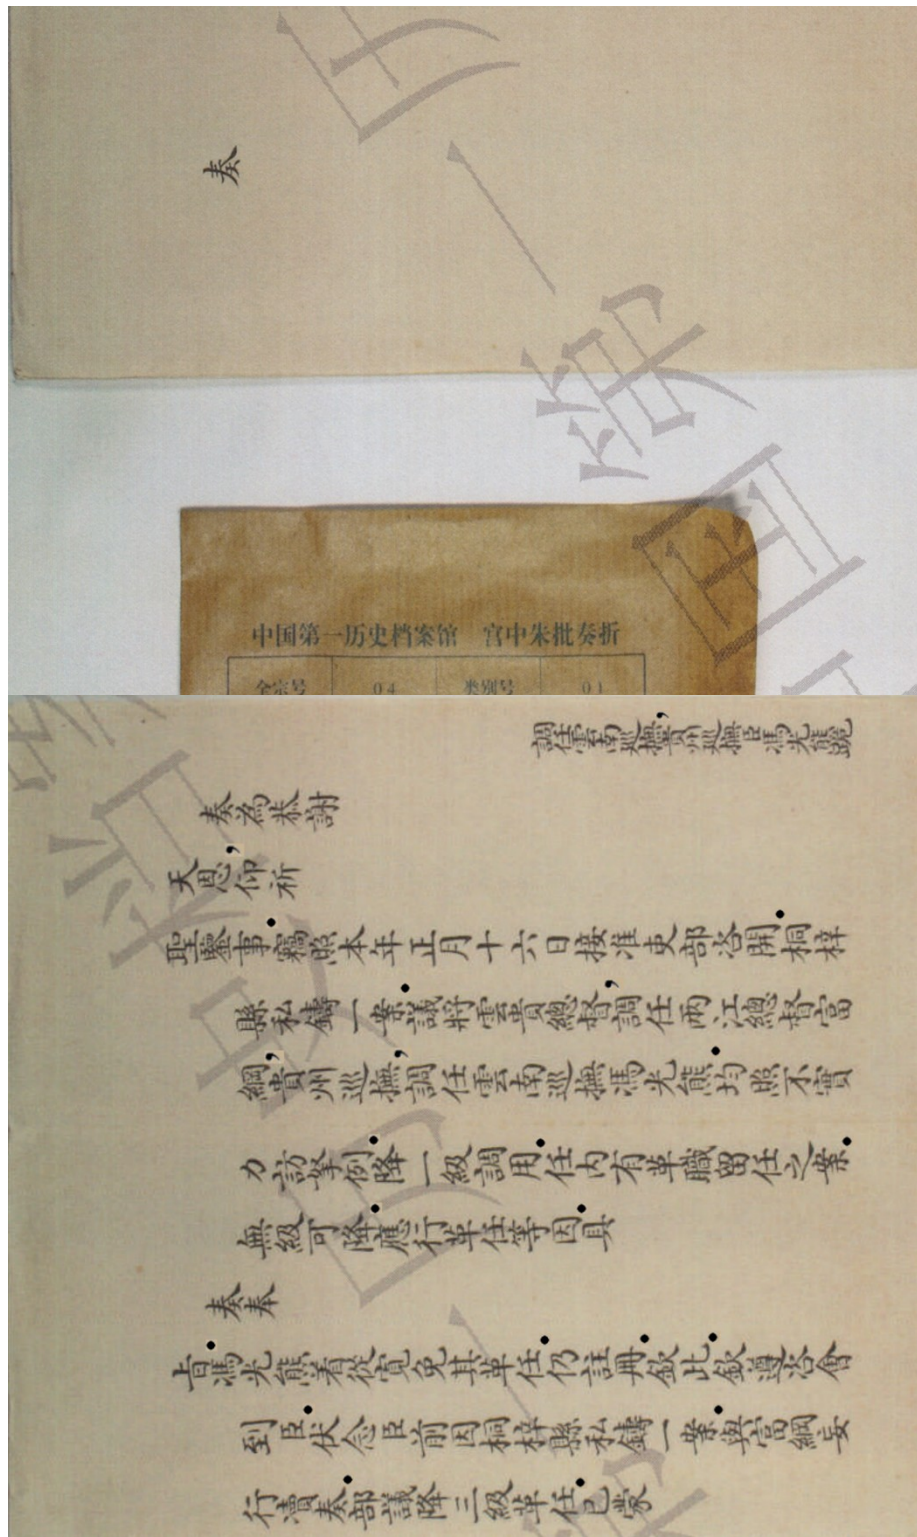 奏
中国第一历史档案馆 宫中朱批奏折
全宗号 04 类别号 01
調任雲南巡撫，貴州巡撫臣馮光熊跪
奏為恭謝
天恩，仰祈
聖鑒事•竊照本年正月十六日接准吏部咨開•桐梓
縣私鑄一案•議將雲貴總督，調任兩江總督富
綱，貴州巡撫，調任雲南巡撫馮光熊•均照不實
力訪拏例•降一級調用•任內有革職留任之案•
無級可降•應行革任等因•具
奏奉
旨•馮光熊着從寬免其革任•仍註冊•欽此•欽遵咨會
到臣•伏念臣前因桐梓縣私鑄一案•與富綱妄
行瀆奏•部議降三級革任•已蒙